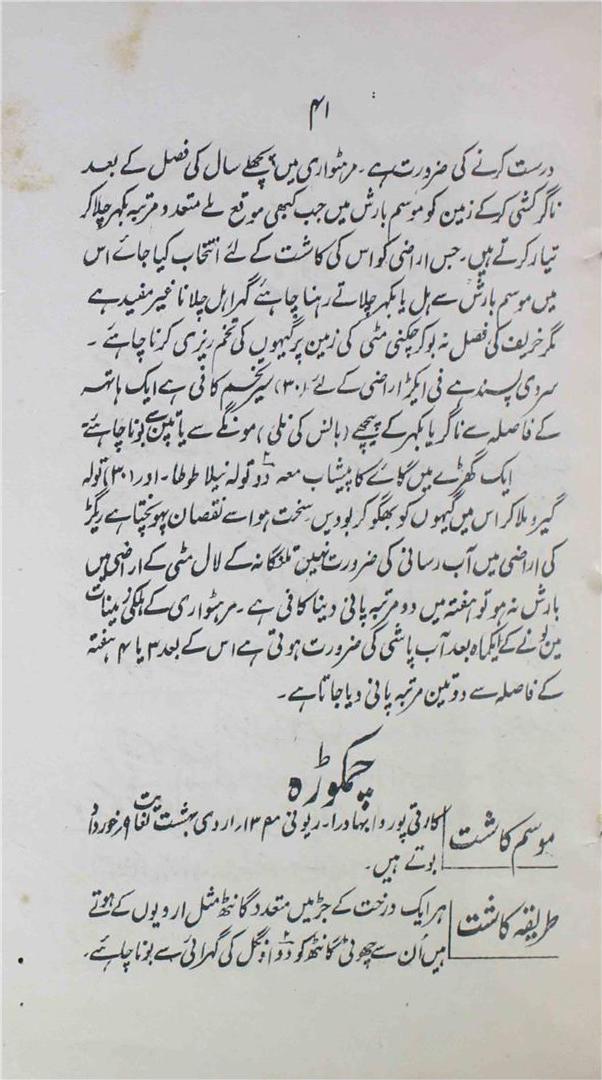 ۴۱
درست کرنے کی ضرورت ہے۔ مرہٹواری میں پچھلے سال کی فصل کے بعد
ناگر کشی کر کے زمین کو موسم بارش میں جب کبھی موقع ملے متعدد مرتبہ بکہر چلا کر
تیار کرتے ہیں۔ جس اراضی کو اس کی کاشت کے لئے انتخاب کیا جائے اس
میں موسم بارش سے ہل یا بکہر چلاتے رہنا چاہئے گہرا ہل چلانا غیر مفید ہے
مگر خریف کی فصل نہ بو کر چکنی مٹی کی زمین پر گیہوں کی تخم ریزی کرنا چاہئے ۔
سردی پسند ہے فی ایکڑ اراضی کے لئے (۳۰) سیر تخم کافی ہے ایک ہاتہہ
کے فاصلہ سے ناگر یا بکہر کے پیچھے (بانس کی نلی) مونگے سے یا تپن سے بونا چاہئے
ایک گھڑے میں گائے کا پیشاب معہ دو ۲ تولہ نیلا طوطا۔ اور (۳۰) تولہ
گیرو ملا کر اس میں گیہوں کو بھگو کر بودیں سخت ہوا سے نقصان پہونچتا ہے ریگڑ
کی اراضی میں آب رسانی کی ضرورت نہیں تلنگانہ کے لال مٹی کے اراضی میں
بارش نہ ہو تو ہفتہ میں دو مرتبہ پانی دینا کافی ہے ۔ مرہٹواری کے ہلکی زمینات
میں بونے کے ایکماہ بعد آب پاشی کی ضرورت ہوتی ہے اس کے بعد ۳ یا ۴ ہفتہ
کے فاصلہ سے دو تین مرتبہ پانی دیا جاتا ہے۔
چمکوڑہ
موسم کاشت کارتی پوروا بہادرا۔ ریونی ۱۳۴۰ اردی بہشت لغایت ۹ خورداد
بوتے ہیں۔
طریقہ کاشت ہر ایک درخت کے جڑ میں متعدد گانٹھ مثل ارویوں کے ہوتے
ہیں اُن سے چھوٹی گانٹھ کو دو ۲ انگل کی گہرائی سے بونا چاہئے۔